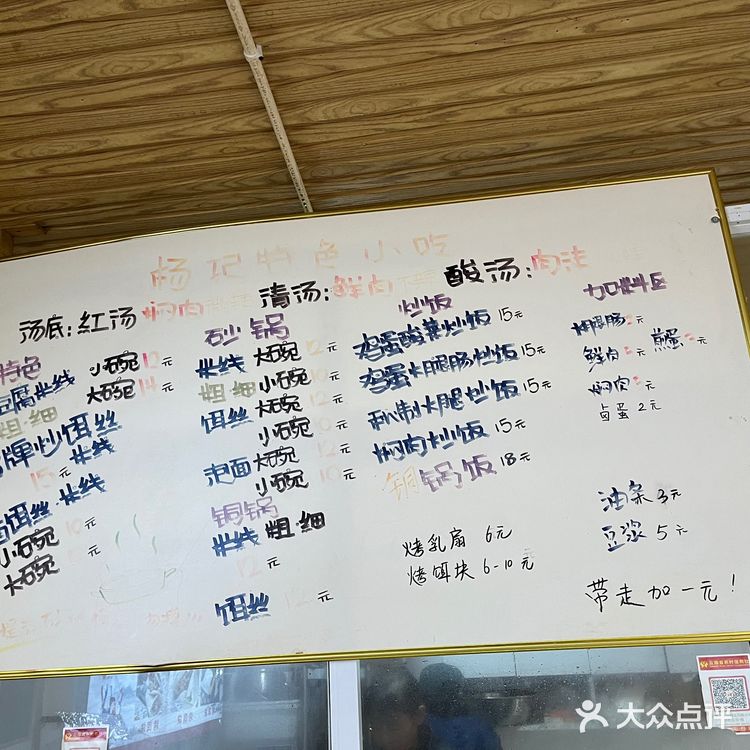 杨记特色小吃
汤底:红汤 焖肉 清汤:鲜肉 酸汤:肉沫
特色
豆腐米线 小碗 12元
粗·细 大碗 14元
牌炒饵丝
15元 米线
饵丝 米线
小碗 元
大碗 元
砂锅
米线 大碗 12元
粗·细 小碗 10元
饵丝 大碗 12元
小碗 10元
泡面 大碗 12元
小碗 10元
铜锅
米线 粗·细
12元
饵丝 12元
炒饭
鸡蛋酸菜炒饭 15元
鸡蛋火腿肠炒饭 15元
秋制火腿炒饭 15元
焖肉炒饭 15元
铜锅饭 18元
烤乳扇 6元
烤饵块 6-10元
加料区
火腿肠 2元
鲜肉 元 煎蛋 2元
焖肉 元
卤蛋 2元
油条 3元
豆浆 5元
带走加一元!
大众点评